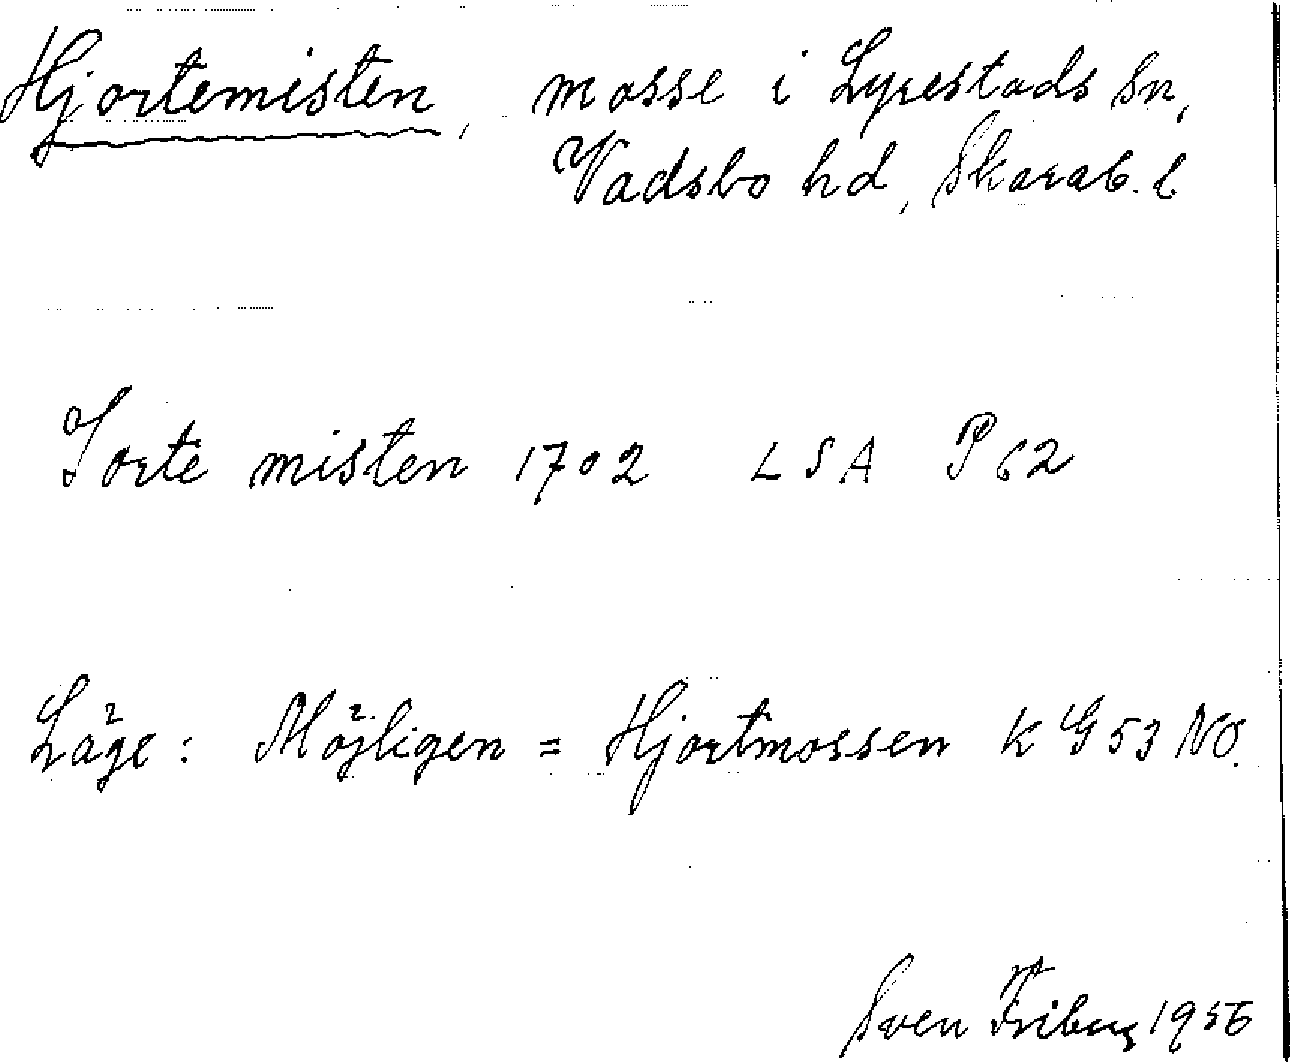 Hjortemisten, mosse i Lyrestads sn,
Vadsbo hd, Skarab. l
Jorte misten 1702 LSA P 62
Läge: Möjligen = Hjortmossen k G 53 NO.
Sven Friberg 1956